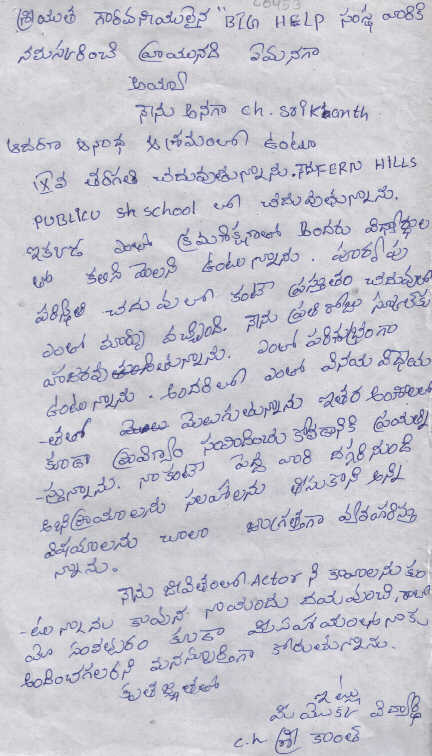 శ్రీయుత గౌరవనీయులైన "BIG HELP సంస్థ వారికి
నమస్కరించి వ్రాయునది ఏమనగా
అయ్యా
నేను అనగా ch. srikanth
ఆదరణ ఆనంద ఆశ్రమంలో ఉంటూ
IX వ తరగతి చదువుతున్నాను. FERN HILLS
PUBLICU sh school లో చదువుతున్నాను.
ఇక్కడ ఎంతో క్రమశిక్షణతో అందరు విద్యార్థుల
తో కలిసి మెలసి ఉంటున్నాను. పూర్వపు
పరిస్థితి చదువులో కంటే ప్రస్తుతం చదువులో
ఎంతో మార్పు వచ్చింది. నేను ప్రతి రోజు స్కూల్‌కు
హాజరవుతున్నాను. ఎంతో పరిశుభ్రంగా
ఉంటున్నాను. అందరిలో ఎంతో వినయ విధేయ
-తలతో మెలుగుతున్నాను ఇతర అంశాలలో
కూడా ప్రావీణ్యం సంపాదించు కోవడానికి ప్రయత్ని
-స్తున్నాను. నాకంటే పెద్ద వారి దగ్గరి నుండి
అభిప్రాయాలను సలహాలను తీసుకొని అన్ని
విషయాలను చాలా జాగ్రత్తగా
న్నాను.
నేను జీవితంలో Actor ని కావాలనుకుం
-టున్నాను కావున నాయందు దయవుంచి,
సంవత్సరం కూడా మీ సహాయంను నాకు
అందించగలరని మనస్ఫూర్తిగా కోరుతున్నాను.
కృతజ్ఞతలతో
ఇట్లు
మీ యొక్క విద్యార్థి
c.h శ్రీ కాంత్